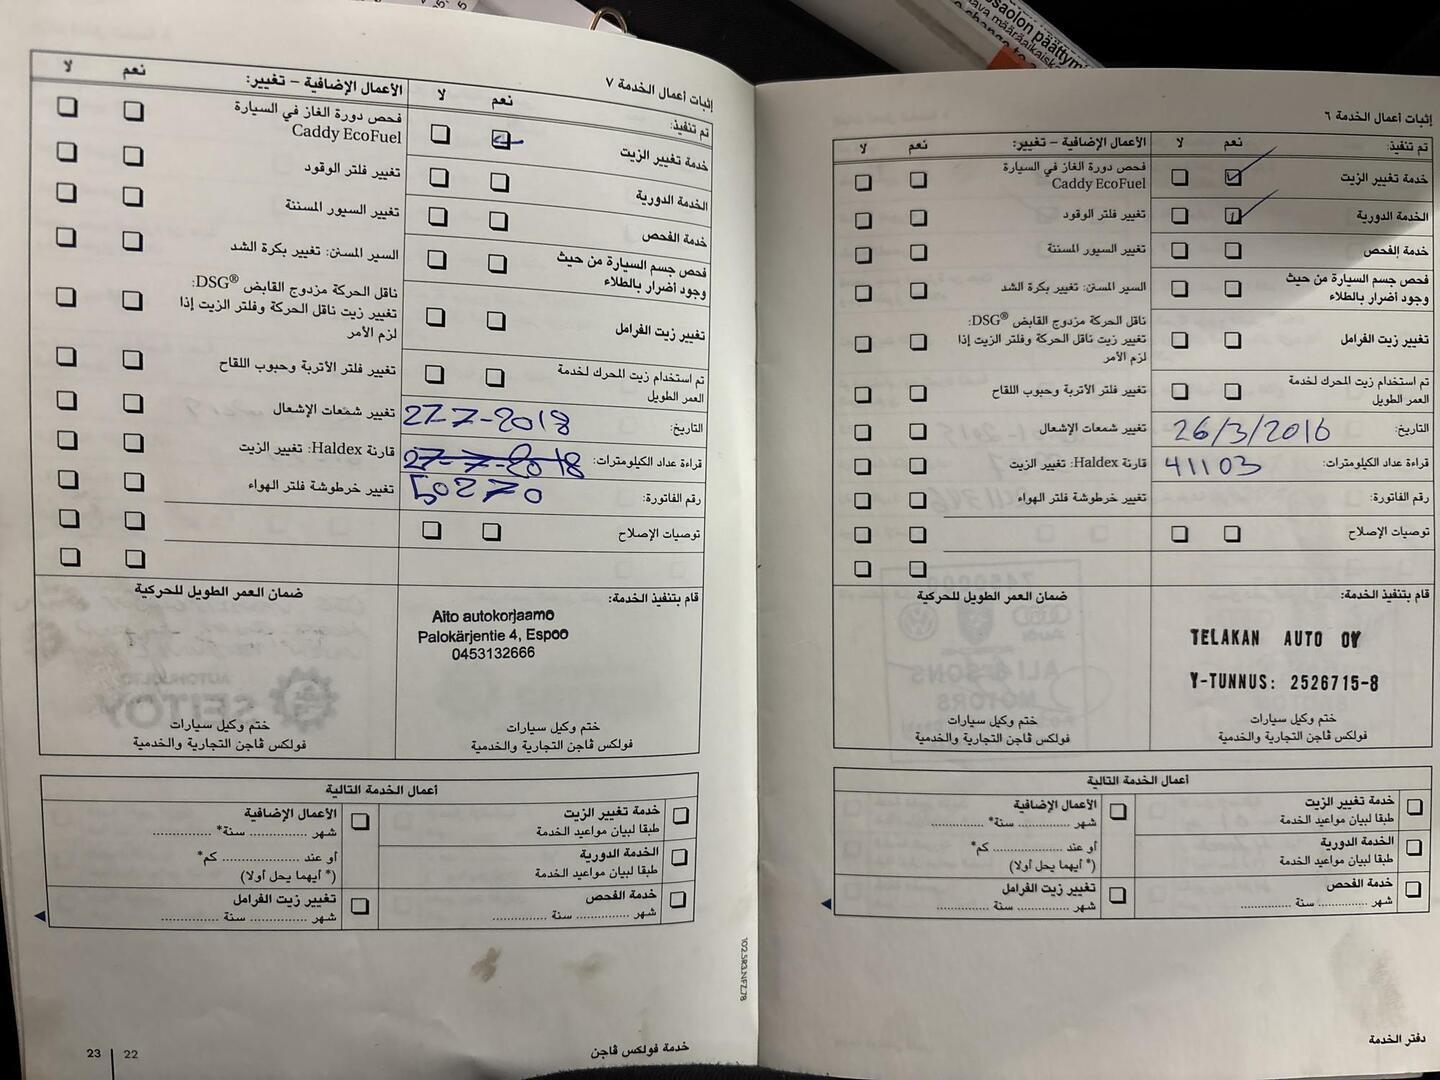 إثبات أعمال الخدمة ٦
تم تنفيذ:
نعم
لا
الأعمال الإضافية – تغيير:
نعم
لا
خدمة تغيير الزيت
فحص دورة الغاز في السيارة
Caddy EcoFuel
الخدمة الدورية
تغيير فلتر الوقود
خدمة الفحص
تغيير السيور المسننة
فحص جسم السيارة من حيث
وجود أضرار بالطلاء
السير المسنن: تغيير بكرة الشد
تغيير زيت الفرامل
ناقل الحركة مزدوج القابض DSG®:
تغيير زيت ناقل الحركة وفلتر الزيت إذا
لزم الأمر
تم استخدام زيت المحرك لخدمة
العمر الطويل
تغيير فلتر الأتربة وحبوب اللقاح
التاريخ:
26/3/2016
تغيير شمعات الإشعال
قراءة عداد الكيلومترات:
41103
قارنة Haldex: تغيير الزيت
رقم الفاتورة:
تغيير خرطوشة فلتر الهواء
توصيات الإصلاح
قام بتنفيذ الخدمة:
TELAKAN AUTO OY
Y-TUNNUS: 2526715-8
ختم وكيل سيارات
فولكس ڤاجن التجارية والخدمية
ضمان العمر الطويل للحركية
ختم وكيل سيارات
فولكس ڤاجن التجارية والخدمية
أعمال الخدمة التالية
خدمة تغيير الزيت
طبقا لبيان مواعيد الخدمة
الأعمال الإضافية
شهر ............... سنة* ...............
الخدمة الدورية
طبقا لبيان مواعيد الخدمة
أو عند ..................... كم*
(* أيهما يحل أولا)
خدمة الفحص
شهر ............... سنة ...............
تغيير زيت الفرامل
شهر ............... سنة ...............
دفتر الخدمة
إثبات أعمال الخدمة ٧
تم تنفيذ:
نعم
لا
الأعمال الإضافية – تغيير:
نعم
لا
خدمة تغيير الزيت
فحص دورة الغاز في السيارة
Caddy EcoFuel
الخدمة الدورية
تغيير فلتر الوقود
خدمة الفحص
تغيير السيور المسننة
فحص جسم السيارة من حيث
وجود أضرار بالطلاء
السير المسنن: تغيير بكرة الشد
تغيير زيت الفرامل
ناقل الحركة مزدوج القابض DSG®:
تغيير زيت ناقل الحركة وفلتر الزيت إذا
لزم الأمر
تم استخدام زيت المحرك لخدمة
العمر الطويل
تغيير فلتر الأتربة وحبوب اللقاح
التاريخ:
27-7-2018
تغيير شمعات الإشعال
قراءة عداد الكيلومترات:
27-7-2018
قارنة Haldex: تغيير الزيت
رقم الفاتورة:
50270
تغيير خرطوشة فلتر الهواء
توصيات الإصلاح
قام بتنفيذ الخدمة:
Aito autokorjaamo
Palokärjentie 4, Espoo
0453132666
ختم وكيل سيارات
فولكس ڤاجن التجارية والخدمية
ضمان العمر الطويل للحركية
ختم وكيل سيارات
فولكس ڤاجن التجارية والخدمية
أعمال الخدمة التالية
خدمة تغيير الزيت
طبقا لبيان مواعيد الخدمة
الأعمال الإضافية
شهر ............... سنة* ...............
الخدمة الدورية
طبقا لبيان مواعيد الخدمة
أو عند ..................... كم*
(* أيهما يحل أولا)
خدمة الفحص
شهر ............... سنة ...............
تغيير زيت الفرامل
شهر ............... سنة ...............
102.5R3.NFZ.78
خدمة فولكس ڤاجن
22
23